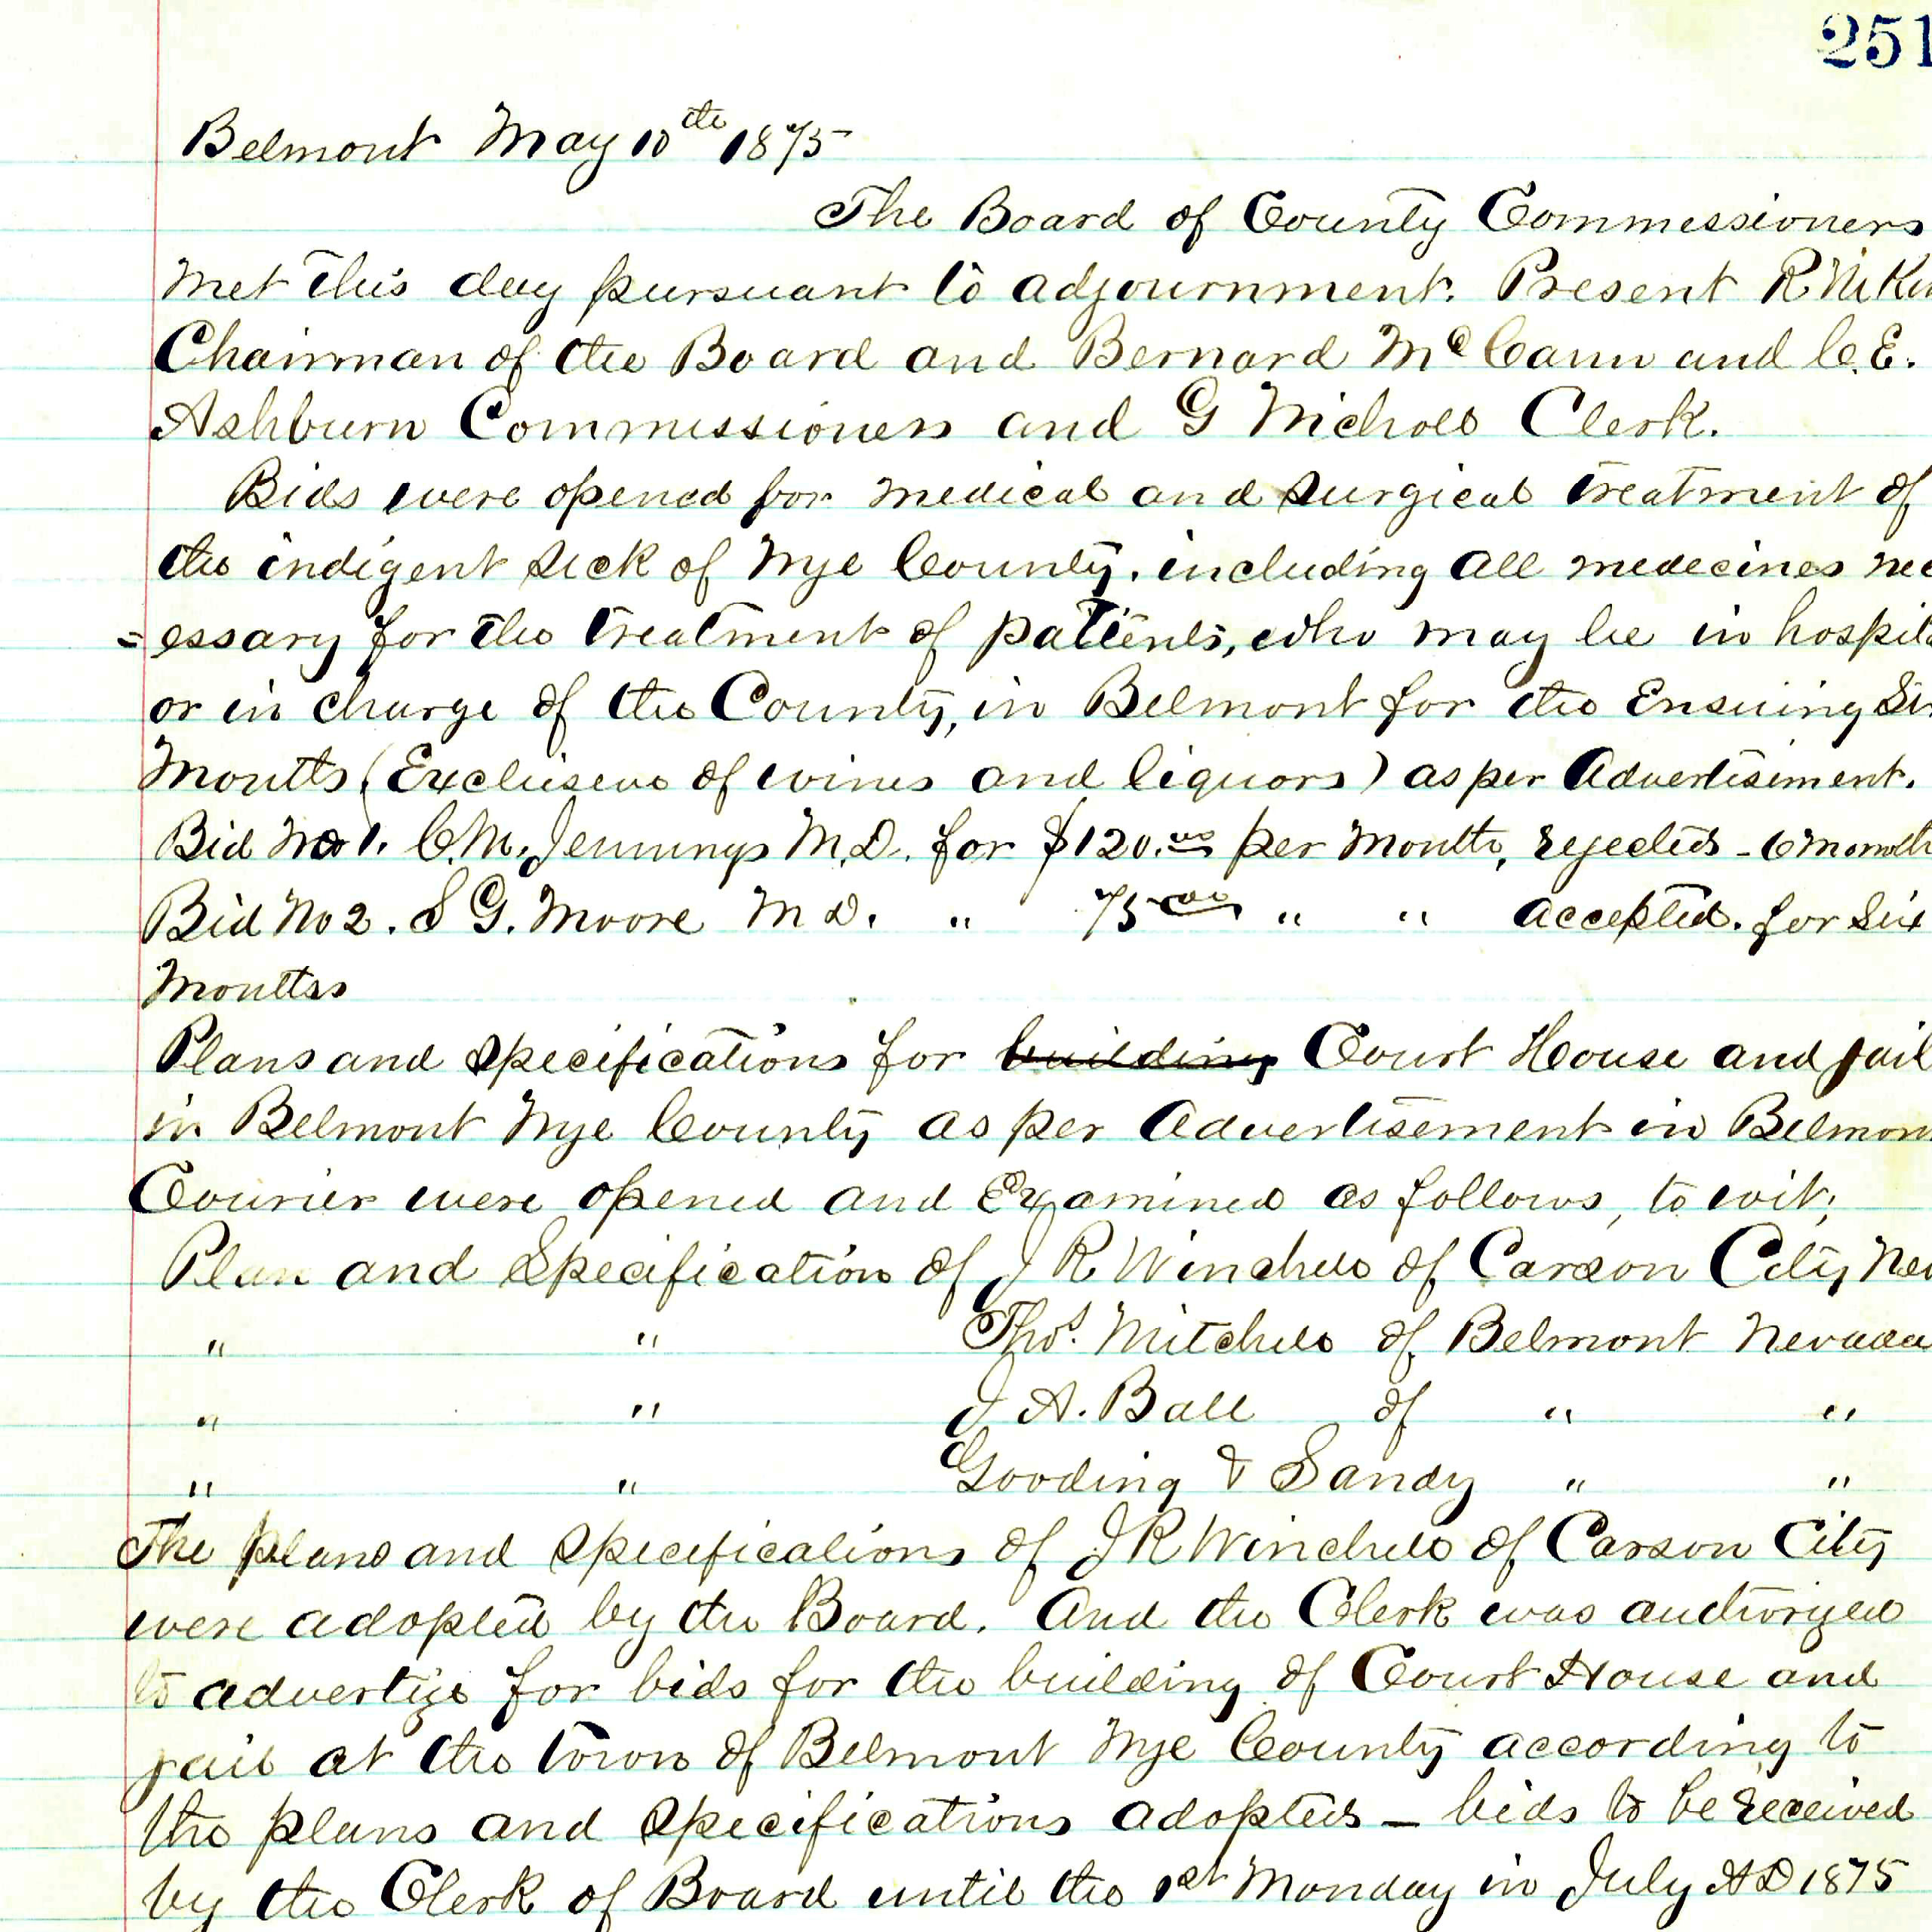 251
Belmont May 10th 1875
The Board of County Commessioners
Met this day pursuant to adjournment. Present R
Chairman of the Board and Bernard McCann and C. E.
Ashburn Commissioners and G Nichols Clerk.
Bids were opened for medical and Surgical treatment of
the indigent sick of Nye County, including all medecines nec
=essary for the treatment of patients, who may be in hospit
or in charge of the County, in Belmont for the Ensuing Si
Months (Exclusive of wines and liquors) as per Advertisement.
Bid No 1. C. M. Jennings M. D. for $120.00 per Month, rejected - 6 month
Bid No 2. S G. Moore M D. " 75 00 " " Accepted. for Six
Months
Plans and Specifications for building Court House and jail
in Belmont Nye County as per Advertisement in Belmon
Courier were opened and Examined as follows, to wit;
Plan and Specification of J R Winchell of Carson City Nev
" " Thos. Mitchell of Belmont Nevada
" " J A. Ball of " "
" " Gooding & Sandy " "
The plans and Specifications of J R Winchell of Carson City
were adopted by the Board. And the Clerk was authorized
to advertize for bids for the building of Court House and
jail at the town of Belmont Nye County according to
the plans and Specifications adopted — bids to be received
by the Clerk of Board until the 1st Monday in July AD 1875